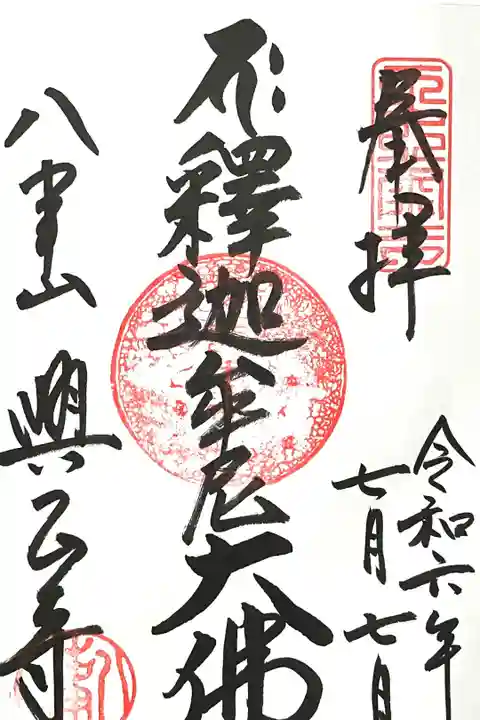 奉拝
令和六年
七月七日
釋迦牟尼大佛
八事山 興正寺